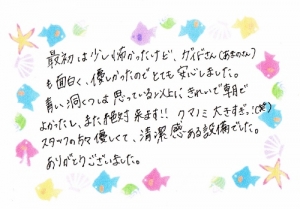 最初は少し怖かったけど、ガイドさん(あまのさん)
も面白く、優しかったのでとても安心しました。
青い洞くつは思っている以上に、きれいで 最高で
よかったし、また絶対来ます!! クマノミ 大きすぎっ!(笑)
スタッフの方々 優しくて、清潔感ある設備でした。
ありがとうございました。